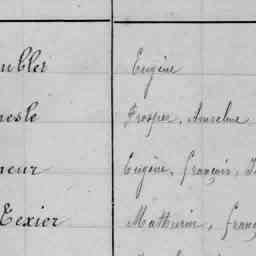 ubler Eugène
nesle Prosper, Anselme
neur Eugène, françois, J
Texier Mathurin, franç